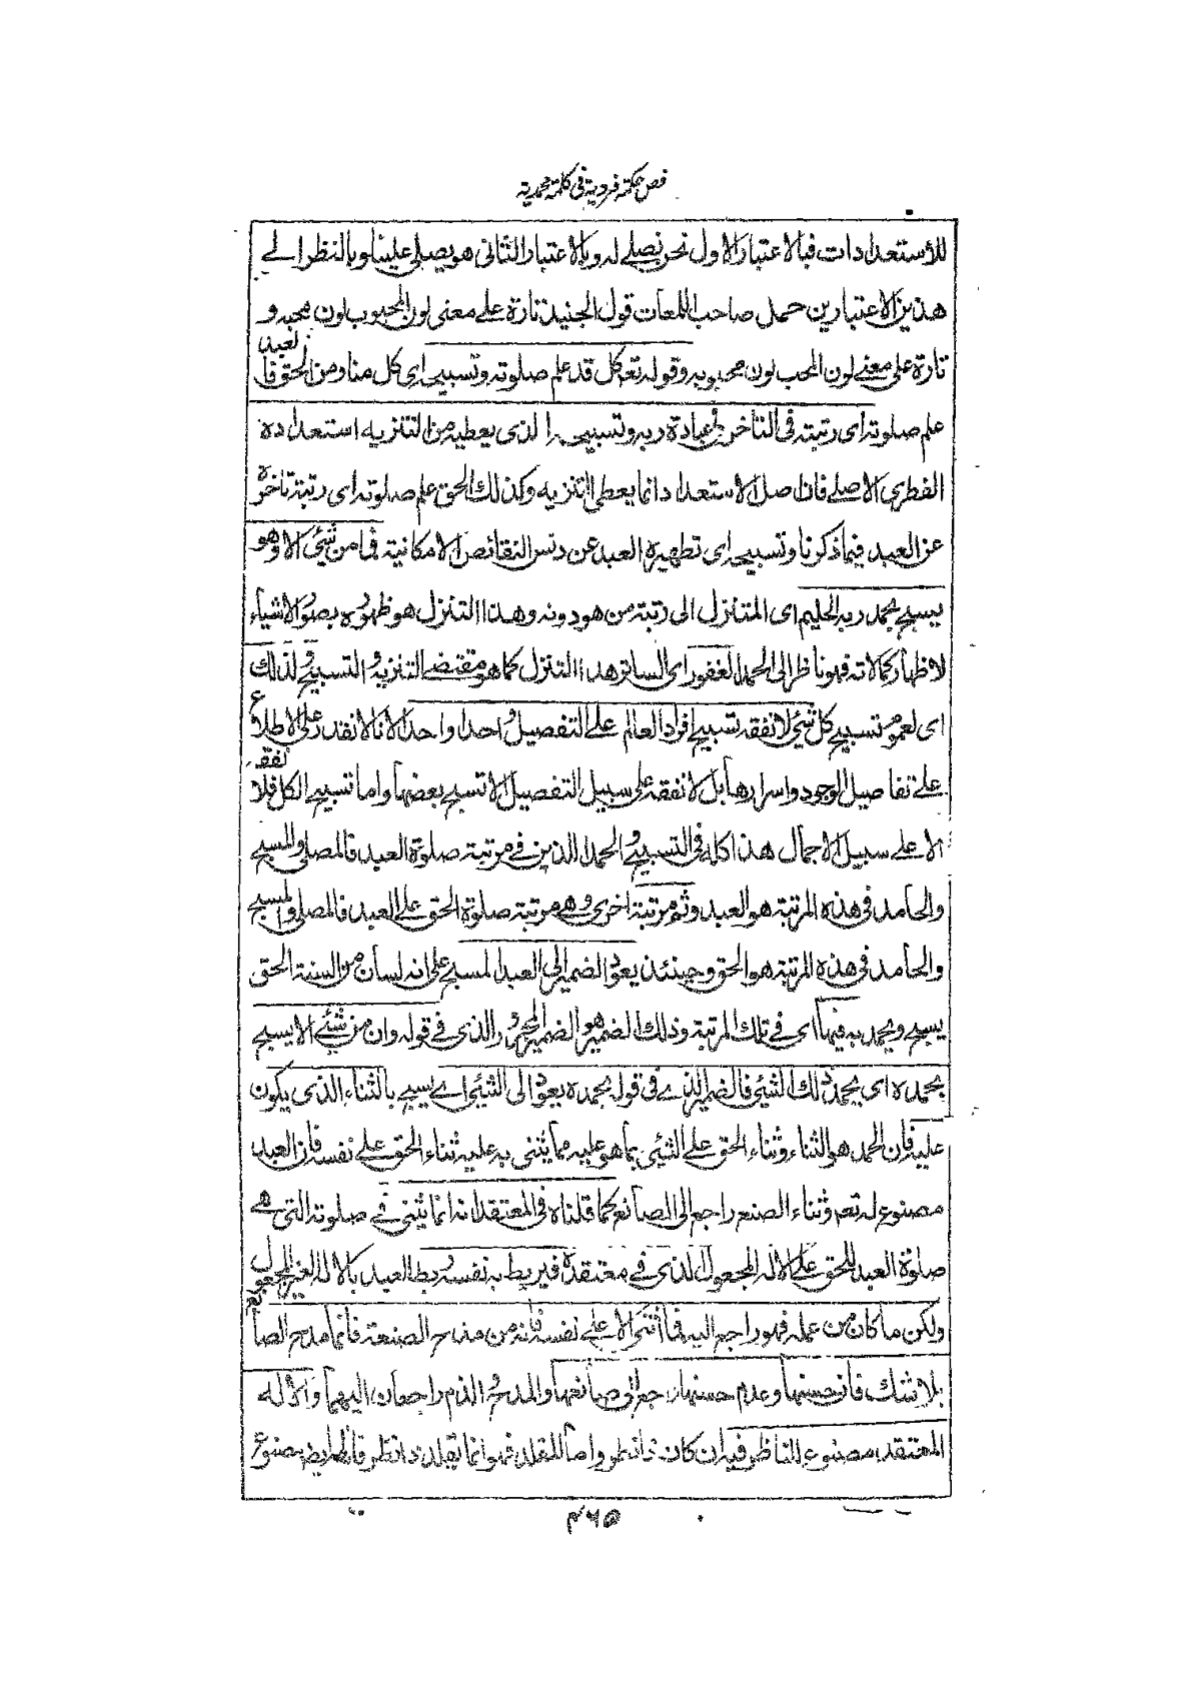 فص حكمة فردية فى كلمة محمدية
للأستعدادات فبالاعتبار الاول نحن نصلے له وبالاعتبار الثانى هو يصلى علينا وبالنظر الے
هذين الاعتبارين حمل صاحب اللمعات قول الجنيد تارة علے معنى لون المحبوب لون محبه و
تارة على معنے لون المحب لون محبوبه وقوله تعہ كل قد علم صلوته وتسبيحه اى كل منا ومن الحق فالعبد
علم صلوته اى رتبته فى التاخر فى عبادة ربه وتسبيحه الذى يعطيه من التنزيه استعداده
الفطرى الاصلے فان اصل الاستعداد انما يعطى التنزيه وكذلك الحق علم صلوته اى رتبة تاخره
عن العبد فيما ذكرنا وتسبيحه اى تطهيره العبد عن دنس النقائص الامكانية فما من شئ الا وهو
يسبح بحمد ربه الحليم اى المتنزل الى رتبة من هو دونه وهذا التنزل هو ظهوره بصور الاشياء
لاظهار كمالاته فهو ناظر الى الحمد الغفور اى الساتر هذا التنزل كما هو مقتضے التنزيه و التسبيح ولذلك
اى لعموم تسبيح كل شئ لا نفقه تسبيح افراد العالم علے التفصيل واحدا واحدا لانا لا نقدر على الاطلاع
علے تفاصيل الوجود واسرارها بل لا نفقه على سبيل التفصيل الا تسبيح بعضها واما تسبيح الكل فلا نفقه
الا علے سبيل الاجمال هذا كله فى التسبيح والحمد الذين فے مرتبة صلوة العبد فالمصلى والمسبح
والحامد فى هذه المرتبة هو العبد وثم مرتبة اخرى وهے مرتبة صلوة الحق علے العبد فالمصلى والمسبح
والحامد فى هذه المرتبة هو الحق وحينئذ يعود الضمير الى العبد المسبح على انه لسان من السنة الحق
يسبح ويحمد به فيها اى فى تلك المرتبة وذلك الضمير هو الضمير المجرور الذى فى قوله وان من شئے الا يسبح
بحمده اى بحمد ذلك الشئ فالضمير الذے فى قوله بحمده يعود الى الشئ اے يسبح بالثناء الذى يكون
عليه فان الحمد هو الثناء وثناء الحق علے الشئ بما هو عليه مما يثنى به عليه ثناء الحق علے نفسه فان العبد
مصنوع له تعہ وثناء الصنع راجع الى الصانع كما قلناه فى المعتقد انه انما يثنى فے صلوته التى هے
صلوة العبد للحق علے الاله المجعول الذى فے معتقده فيربط به نفسه ربط العبد بالاله الغير المجعول
ولكن ما كان من عمله فهو راجع اليه فما أثنى الا علے نفسه فانه من مدح الصنعة فانما مدح الصانع
بلا شك فان حسنها وعدم حسنها راجع الى صانعها والمدح والذم راجعان اليهما والاله
المعتقد مصنوع للناظر فيه ان كان ذا نظر واما المقلد فهو انما يقلد ذا نظر فالهه ايضا مصنوع
۴۶۵